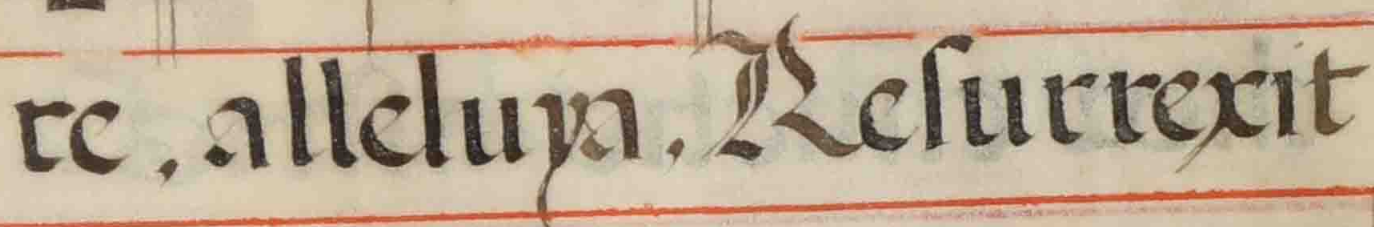 re, alleluya. Resurrexit